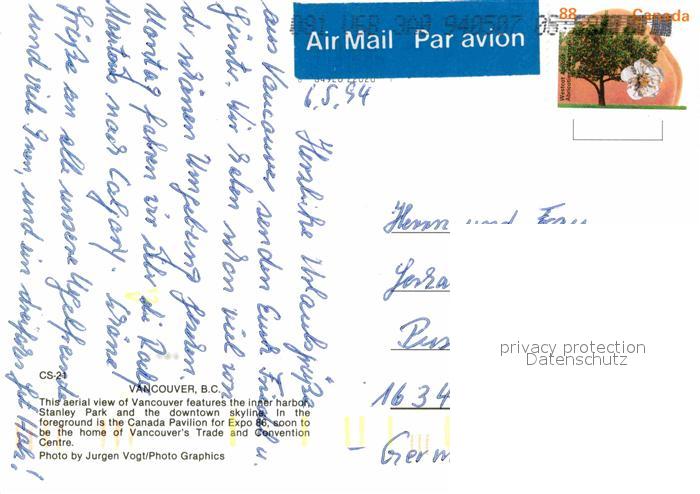 6.5.94
Herzliche Urlaubsgrüße
aus Vancouver senden Euch Friedel u.
Günter. Wir haben schon viel von
der schönen Umgebung gesehen.
Montag fahren wir über die Rocky
Mountains nach Calgary. Schöne
Grüße an alle unsere Kegelfreunde
und viel
und ein dreifach gut Holz!
081 VER 3A0 940507
Air Mail Par avion
88 Canada
Westcot Apricot
Herrn und Frau
1634
Germ
privacy protection
Datenschutz
CS-21
VANCOUVER, B.C.
This aerial view of Vancouver features the inner harbor,
Stanley Park and the downtown skyline. In the
foreground is the Canada Pavilion for Expo 86, soon to
be the home of Vancouver's Trade and Convention
Centre.
Photo by Jurgen Vogt/Photo Graphics